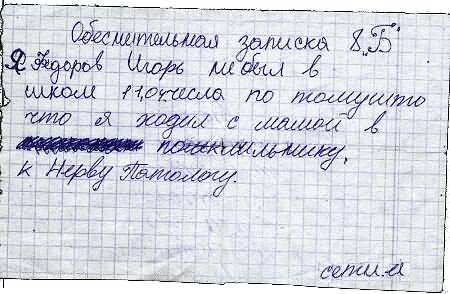 Обеснительная записка 8 „Б"
Я Фёдоров Игорь не был в
школ 11,04 числа по томушто
что я ходил с мамой в
к Нерву Патологу.